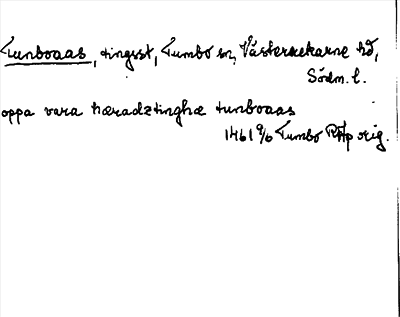 Tunboaas, tingsst, Tumbo sn, Västerrekarne hd,
Södm. l.
oppa vara hæradztinghæ tunboaas
1461 9/6 Tumbo RAp orig.